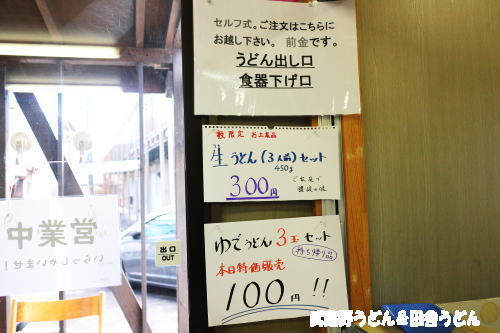 セルフ式。ご注文はこちらに
お越し下さい。前金です。
うどん出し口
食器下げ口
数限定 お土産品
生うどん(3人前)セット
450g
300円
ご家庭で
讃岐の味
ゆでうどん3玉セット
持ち帰り品
本日特価販売
100円!!
出口
OUT
営業中
いらっしゃいませ!
武蔵野うどん&田舎うどん